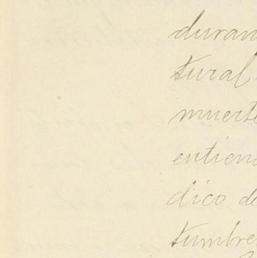 duran
tural
muerte
entien
dico de
tumbre